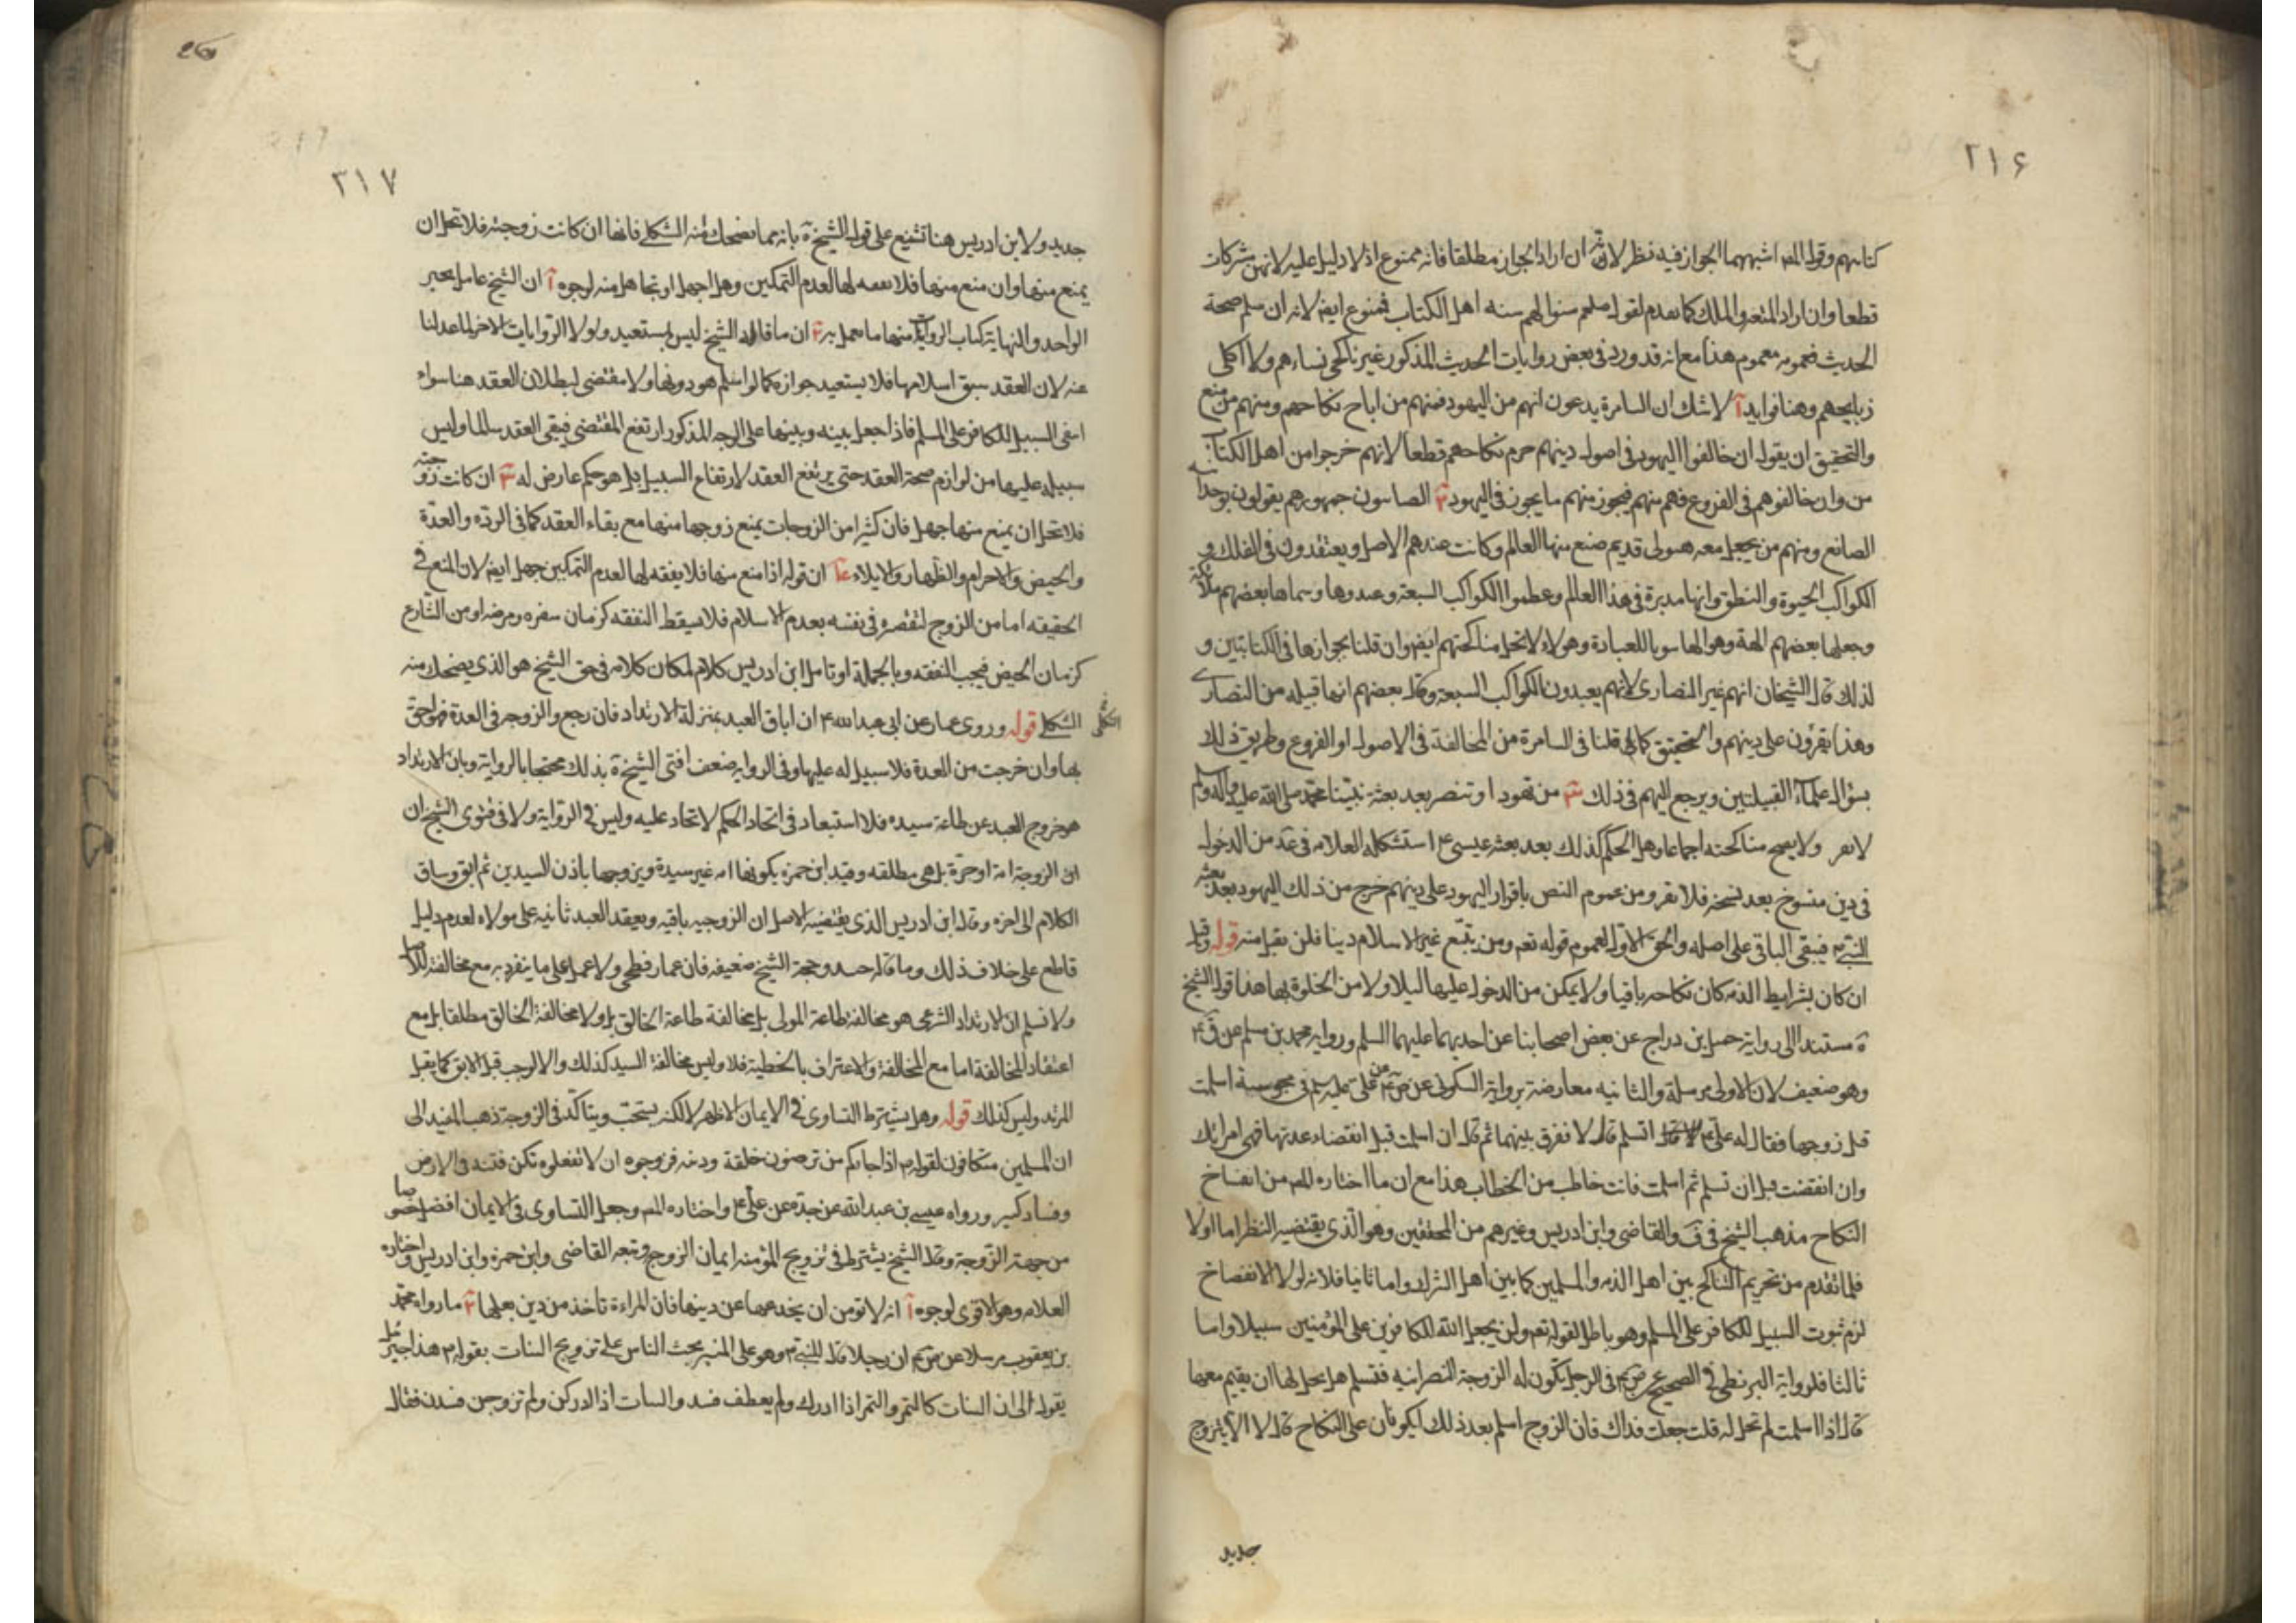 ٢١۶
كتابهم وقول المصـ اشبههما الجواز فيه نظر لانه ان اراد الجواز مطلقا فانه ممنوع اذ لا دليل عليه لانهن مشركات
قطعا وان اراد المتعه والملك كما تقدم لقوله صلعم سنوا بهم سنه اهل الكتاب فممنوع ايضا لانه ان سلم صحة
الحديث فعمومه معموم هذا مع انه قد ورد فى بعض روايات الحديث المذكور غير ناكحى نساءهم ولا اكلى
ذبايحهم وهنا فوايد آ لا شك ان السامرة يدعون انهم من اليهود فمنهم من اباح نكاحهم ومنهم من منع
والتحقيق ان يقول ان خالفوا اليهود فى اصول دينهم حرم نكاحهم قطعا لانهم خرجوا من اهل الكتاب
من وان خالفوهم فى الفروع فهم منهم فيجوز منهم ما يجوز فى اليهود ٢ الصابئون جمهورهم يقولون بوحدانية
الصانع ومنهم من يجعل معه هيولى قديم صنع منها العالم وكانت عندهم الاصل ويعتقدون فى الفلك و
الكواكب الحيوة والنطق وانها مدبرة فى هذا العالم وعظموا الكواكب السبعة وعبدوها وسماها بعضهم ملائكة
وجعلها بعضهم الهة وهو الها سويا للعبادة وهولاء لا تحل مناكحتهم ايضا وان قلنا بجوازها فى الكتابتين و
لذلك قال الشيخان انهم غير النصارى لانهم يعبدون الكواكب السبعة وقال بعضهم انها قبيله من النصارى
وهذا يقرون على دينهم والتحقيق كما قلنا فى السامرة من المخالفة فى الاصول او الفروع وطريق ذلك
بسؤال علماء القبيلتين ويرجع اليهم فى ذلك ٣ من تهود او تنصر بعد بعثة نبينا محمد صلى الله عليه واله وسلم
لا يقر ولا يصح مناكحته اجماعا وهل الحكم كذلك بعد بعثه عيسى ع استشكله العلامه فى عد من الدخول
فى دين منسوخ بعد نسخه فلا يقر ومن عموم النص باقرار اليهود على دينهم خرج من ذلك اليهود بعد بعثه
النبى ص فيبقى الباقى على اصله والحق الاول لعموم قوله تعم ومن يبتغ غير الاسلام دينا فلن يقبل منه قوله وقيل
ان كان بشرايط الذمه كان نكاحه باقيا ولا يمكن من الدخول عليها ليلا ولا من الخلوة بها هذا قول الشيخ
ة مستندا الى رواية جميل بن دراج عن بعض اصحابنا عن احدهما عليهما السلم ورواية محمد بن مسلم عن ق ع
وهو ضعيف لان الاولى مرسلة والثانيه معارضة برواية السكونى عن ص ع عن على عليه سلم فى مجوسية اسلمت
قبل زوجها فقال له على ع اتسلم قال لا ففرق بينهما ثم قال ان اسلمت قبل انقضاء عدتها فهى امراتك
وان انقضت قبل ان تسلم ثم اسلمت فانت خاطب من الخطاب هذا مع ان ما اختاره المصـ من انفساخ
النكاح مذهب الشيخ فى ف والقاضى وابن ادريس وغيرهم من المحققين وهو الذى يقتضيه النظر اما اولا
فلما تقدم من تحريم التناكح بين اهل الذمه والمسلمين كما بين اهل الشرك واما ثانيا فلانه لولا الانفساخ
لزم ثبوت السبيل للكافر على المسلم وهو باطل لقوله تعم ولن يجعل الله للكافرين على المؤمنين سبيلا واما
ثالثا فلرواية البزنطى فى الصحيح عن ض ع فى الرجل تكون له الزوجة النصرانيه فتسلم هل يحل لها ان يقيم معها
قال اذا اسلمت لم تحل له قلت جعلت فداك فان الزوج اسلم بعد ذلك ايكونان على النكاح قال لا الا بتزويج
جديد
٢١٧
جديد ولابن ادريس هنا تشنيع على قول الشيخ ة بانه مما يضحك منه الثكلى فانها ان كانت زوجته فلا تحل ان
يمنع منها وان منع منها فلا نفقه لها لعدم التمكين وهل اجهل او تجاهل منه لوجوه آ ان الشيخ عامل بخبر
الواحد والنهاية كتاب الروايات منها ما يعمل به ٢ ان ما قاله الشيخ ليس ببستعيد ولولا الروايات الاخر لما عدلنا
عنه لان العقد سبق اسلامها فلا يستعيد جوازه كما لو اسلم هو دونها ولا مقتضى لبطلان العقد هنا سواء
انتفى السبيل للكافر على المسلم فاذا جعل بينه وبينها على الوجه المذكور ارتفع المقتضى فيبقى العقد سالما وليس
سبيله عليها من لوازم صحة العقد حتى يرتفع العقد لارتفاع السبيل بل هو حكم عارض له ٣ ان كانت زوجته
فلا تحل ان يمنع منها جهل فان كثيرا من الزوجات يمنع زوجها منها مع بقاء العقد كما فى الردة والعدة
والحيض والاحرام والظهار والايلاء ٤ ان قوله اذا منع منها فلا نفقه لها لعدم التمكين جهل ايضا لان المنع فى
الحقيقه اما من الزوج لتقصيره فى نفسه بعدم الاسلام فلا يسقط النفقه كزمان سفره ومرضه او من الشارع
كزمان الحيض فيجب النفقه وبالجملة او تامل ابن ادريس كلامه لكان كلامه فى حق الشيخ هو الذى يضحك منه
الثكلى قوله وروى عمار عن ابى عبد الله ع ان اباق العبد بمنزلة الارتداد فان رجع والزوجه فى العدة فهو احق
بها وان خرجت من العدة فلا سبيل له عليها وفى الروايه ضعف افتى الشيخ ة بذلك محتجا بالرواية وبان الارتداد
هو خروج العبد عن طاعة سيده فلا استبعاد فى اتحاد الحكم لاتحاد عليه وليس فى الرواية ولا فى فتوى الشيخ ان
ان الزوجة امة او حرة بل هى مطلقه وقيد ابن حمزه بكونها امه غير سيده وتزوجها باذن السيدين ثم ابق وساق
الكلام الى اخره وقال ابن ادريس الذى يقتضيه الاصل ان الزوجيه باقيه وبعقد العبد ثانيه على مولاه لعدم دليل
قاطع على خلاف ذلك وما قاله جيد وحجة الشيخ ضعيفه فان عمار فطحى ولا عمل على ما ينفرد به مع مخالفته للاصل
ولا نسلم ان الارتداد الشرعى هو مخالفة طاعة المولى بل مخالفة طاعة الخالق بل ولا مخالفة الخالق مطلقا بل مع
اعتقاد المخالفة اما مع المخالفة والاعتراف بالخطيئة فلا وليس مخالفة السيد كذلك والا لوجب قتل الابق كما يقتل
المرتد وليس كذلك قوله وهل يشترط التساوى فى الايمان الاظهر لا لكنه يستحب ويتاكد فى الزوجة ذهب المفيد الى
ان المسلمين متكافون لقوله ص اذا جاءكم من ترضون خلقه ودينه فزوجوه ان لا تفعلوه تكن فتنه فى الارض
وفساد كبير ورواه عيسى بن عبد الله عن جده عن على ع واختاره المصـ وجعل التساوى فى الايمان افضل خصوصا
من جهة الزوجة وقال الشيخ يشترط فى تزويج المؤمنه ايمان الزوج وتبعه القاضى وابن حمزه وابن ادريس واختاره
العلامه وهو الاقوى لوجوه آ انه لا تومن ان يخدعها عن دينها فان المراءة تاخذ من دين بعلها ٢ ما رواه محمد
بن يعقوب مرسلا عن ص ع ان رجلا قال للنبى ص وهو على المنبر يحث الناس على تزويج البنات بقوله ص هذا جبرئيل
يقول الى ان البنات كالثمر والثمر اذا ادرك ولم يقطف فسد والبنات اذا ادركن ولم تزوجن فسدن فقال